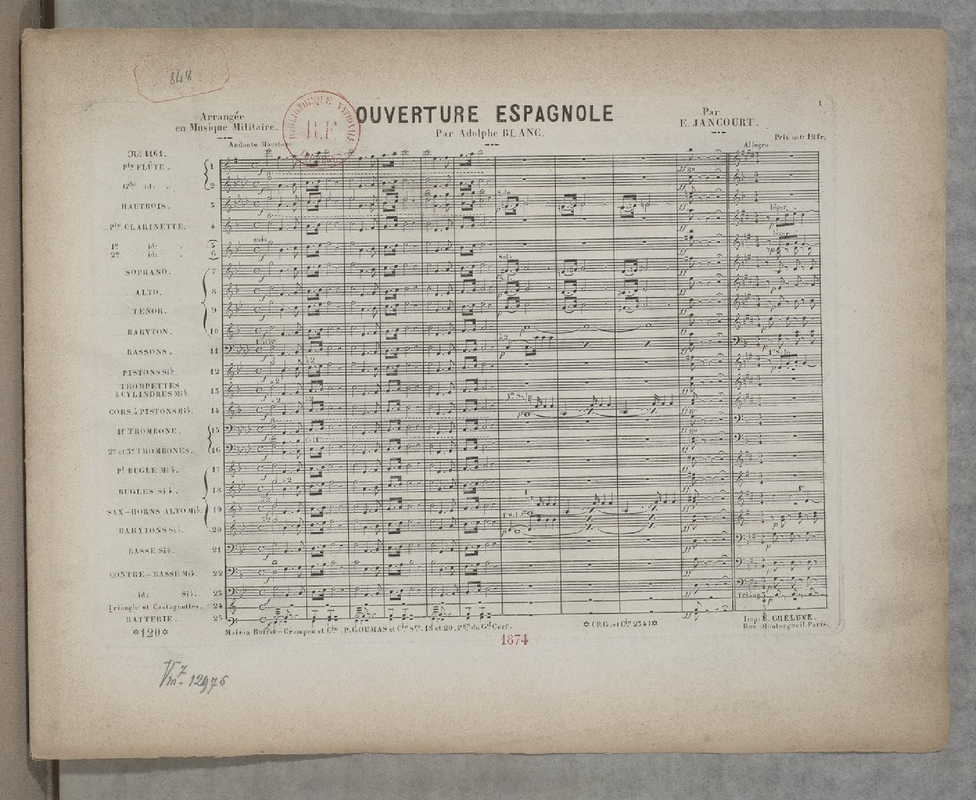 848
1
Arrangée
en Musique Militaire.
OUVERTURE ESPAGNOLE
Par Adolphe BLANC.
Par
E. JANCOURT.
Prix net: 12 fr.
BIBLIOTHEQUE NATIONALE
R.F.
Andante Maestoso
Allegro
No. 1161.
Pte FLÛTE. 1
Gde id: 2
HAUTBOIS. 3
Pte CLARINETTE. 4
1re id: 5
2me id: 6
SOPRANO. 7
ALTO. 8
TENOR. 9
BARYTON. 10
BASSONS. 11
PISTONS Si♭. 12
TROMPETTES
à CYLINDRES Mi♭. 13
CORS à PISTONS Mi♭. 14
1r TROMBONE. 15
2e et 3e TROMBONES. 16
Pt BUGLE Mi♭. 17
BUGLES Si♭. 18
SAX-HORNS ALTO Mi♭. 19
BARYTONS Si♭. 20
BASSE Si♭. 21
CONTRE-BASSE Mi♭. 22
id: Si♭. 23
Triangle et Castagnettes. 24
BATTERIE. 25
Solo
léger
léger
Triang:
*120*
Maison Buffet-Crampon et Cie, P. GOUMAS et Cie Srs, 18 et 20, Pge du Gd Cerf.
*(P.G. et Cie 234)*
Imp: E. GHELUVE.
Rue Montorgueil, Paris.
1874
Vm7 12976